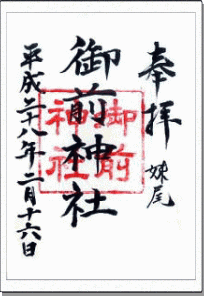 奉拝
妹尾
御前神社
御前
神社
平成二十八年二月十六日